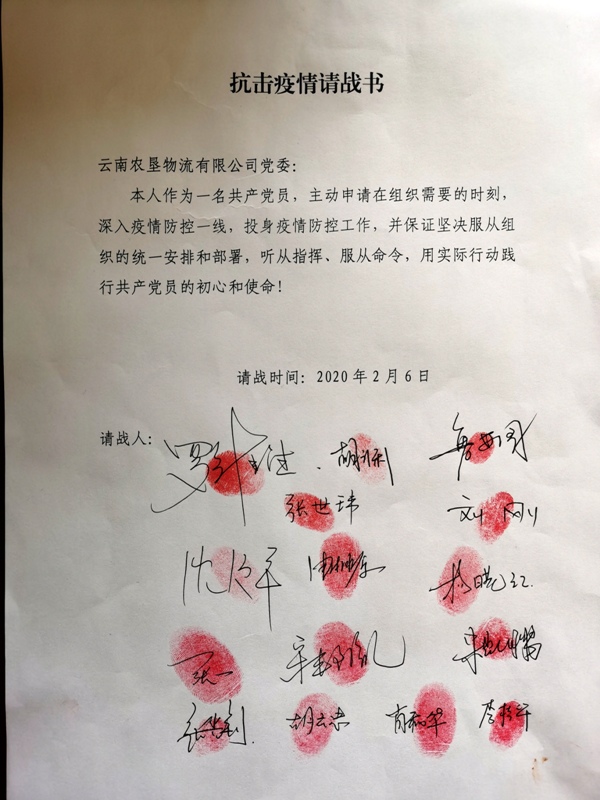 抗击疫情请战书
云南农垦物流有限公司党委：
本人作为一名共产党员，主动申请在组织需要的时刻，
深入疫情防控一线，投身疫情防控工作，并保证坚决服从组
织的统一安排和部署，听从指挥、服从命令，用实际行动践
行共产党员的初心和使命！
请战时间：2020年2月6日
请战人：
张世玮 刘刚